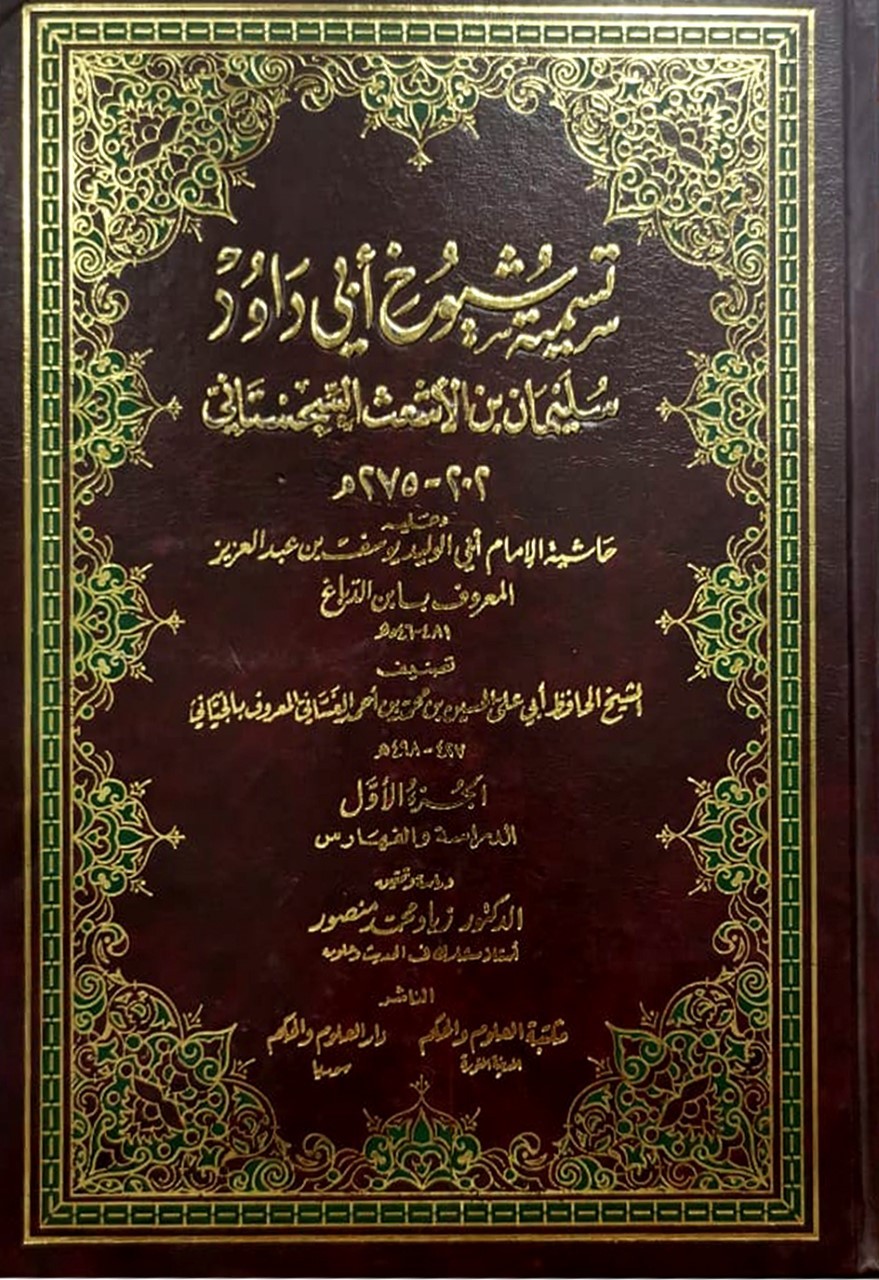 تسمية شيوخ أبي داود
سليمان بن الأشعث السجستاني
٢٠٢-٢٧٥هـ
وعليه
حاشية الإمام أبي الوليد يوسف بن عبد العزيز
المعروف بابن الدباغ
٤٨١-٥٤٦هـ
تصنيف
الشيخ الحافظ أبي علي الحسين بن محمد بن أحمد الغساني المعروف بالجياني
٤٢٧-٤٩٨هـ
الجزء الأول
الدراسة والفهارس
دراسة وتحقيق
الدكتور زياد محمد منصور
أستاذ مشارك في الحديث وعلومه
الناشر
مكتبة العلوم والحكم دار العلوم والحكم
المدينة المنورة سوريا